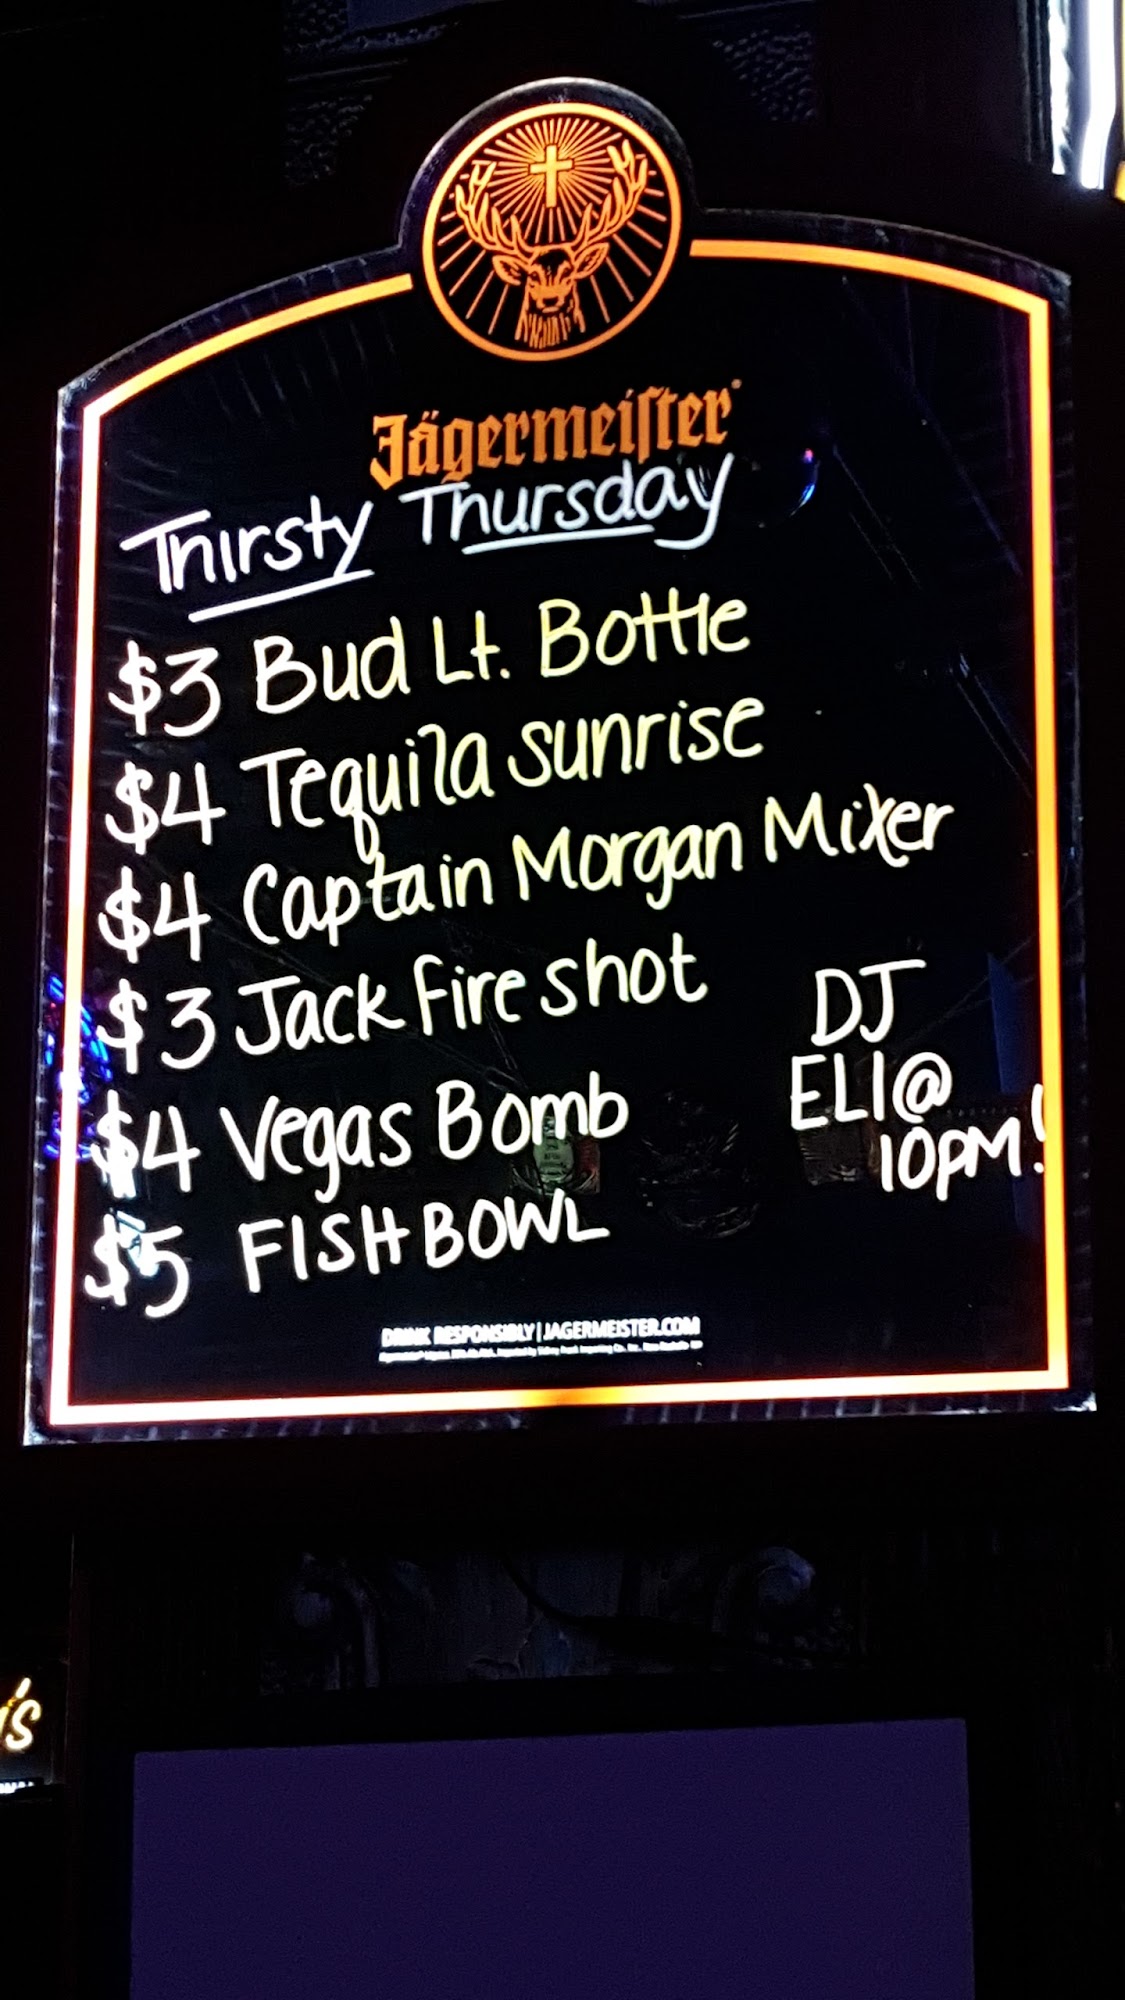 Jägermeister
Thirsty Thursday
$3 Bud Lt. Bottle
$4 Tequila sunrise
$4 Captain Morgan Mixer
$3 Jack Fire shot
$4 Vegas Bomb
$5 FISH BOWL
DJ
ELI@
10PM!
DRINK RESPONSIBLY | JAGERMEISTER.COM
's